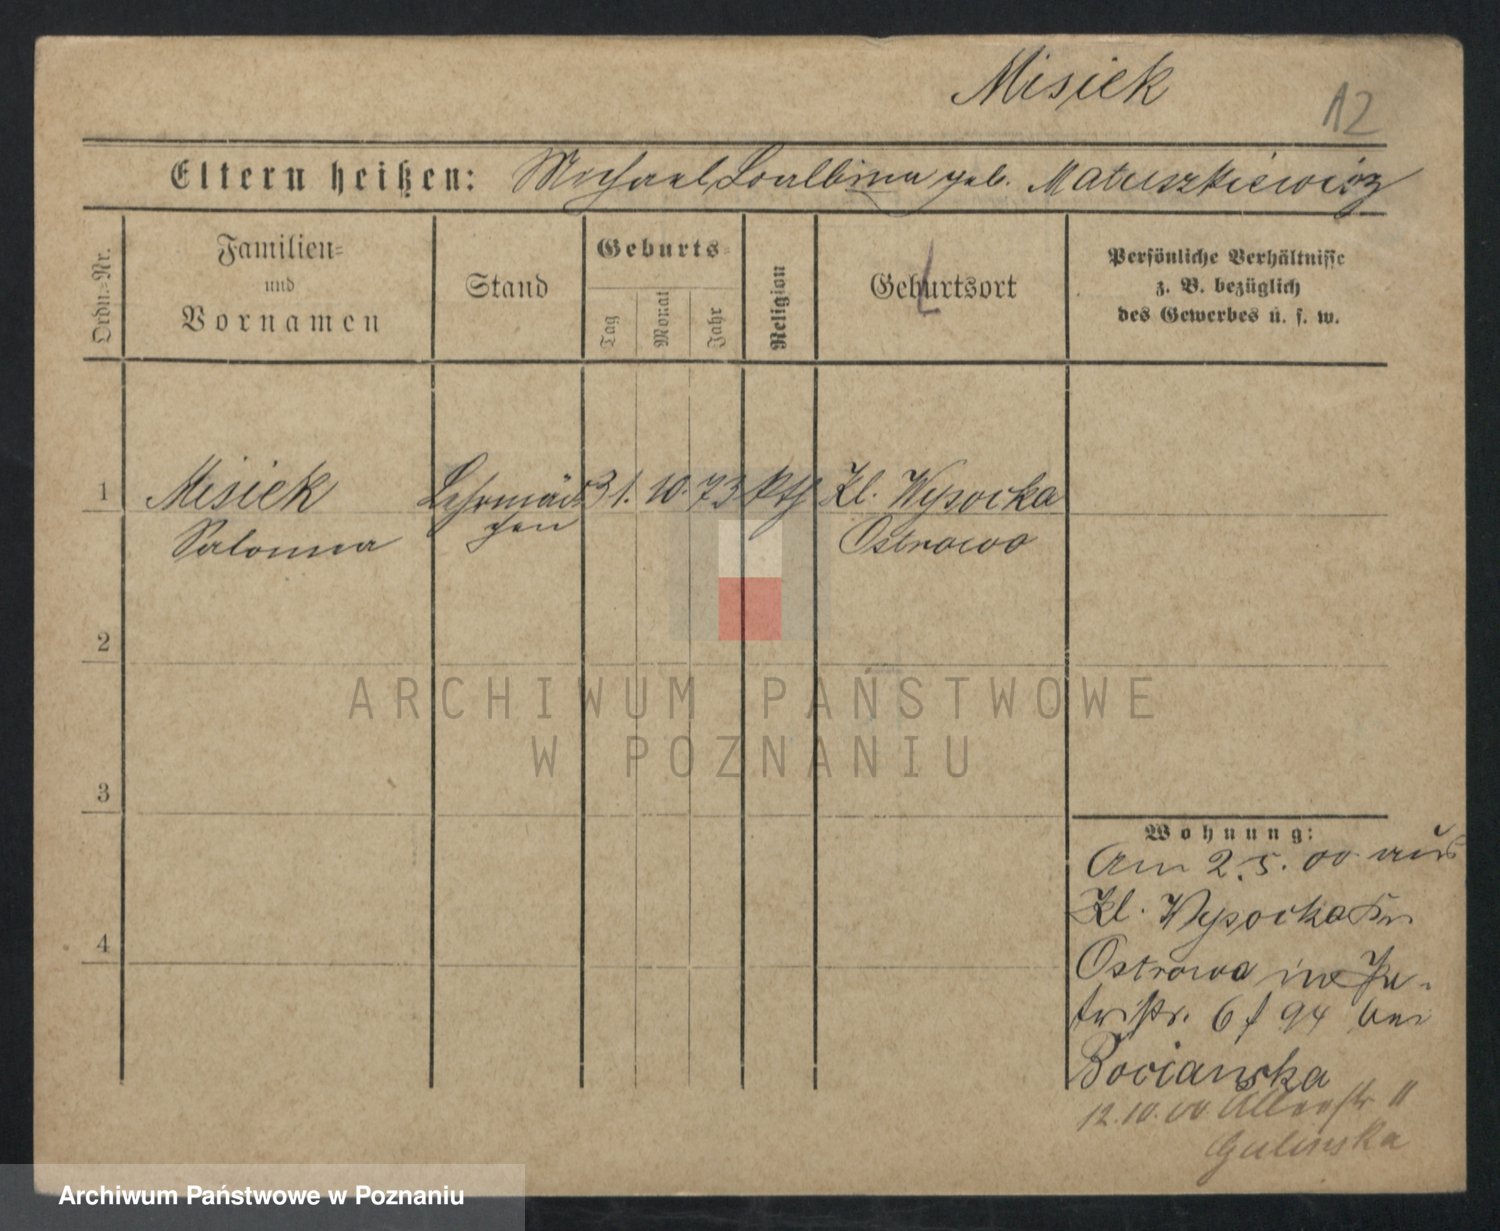 Misiek
12
Eltern heißen: Michael, Balbina geb. Matuszkiewicz
Ordn.=Nr.
Familien=
und
Vornamen
Stand
Geburts=
Tag
Monat
Jahr
Religion
Geburtsort
Persönliche Verhältnisse
z. B. bezüglich
des Gewerbes u. s. w.
1 Misiek Lehrmäd= 31. 10. 73 kth Kl. Wysocka
Salomea chen Ostrowo
2
ARCHIWUM PAŃSTWOWE
W POZNANIU
3
Wohnung:
Am 2.5.00 aus
Kl. Wysocka Kr.
Ostrowo in Pe-
tristr. 6 f 94 bei
Bocianska
12.10.00 11
Gulinska
4
Archiwum Państwowe w Poznaniu